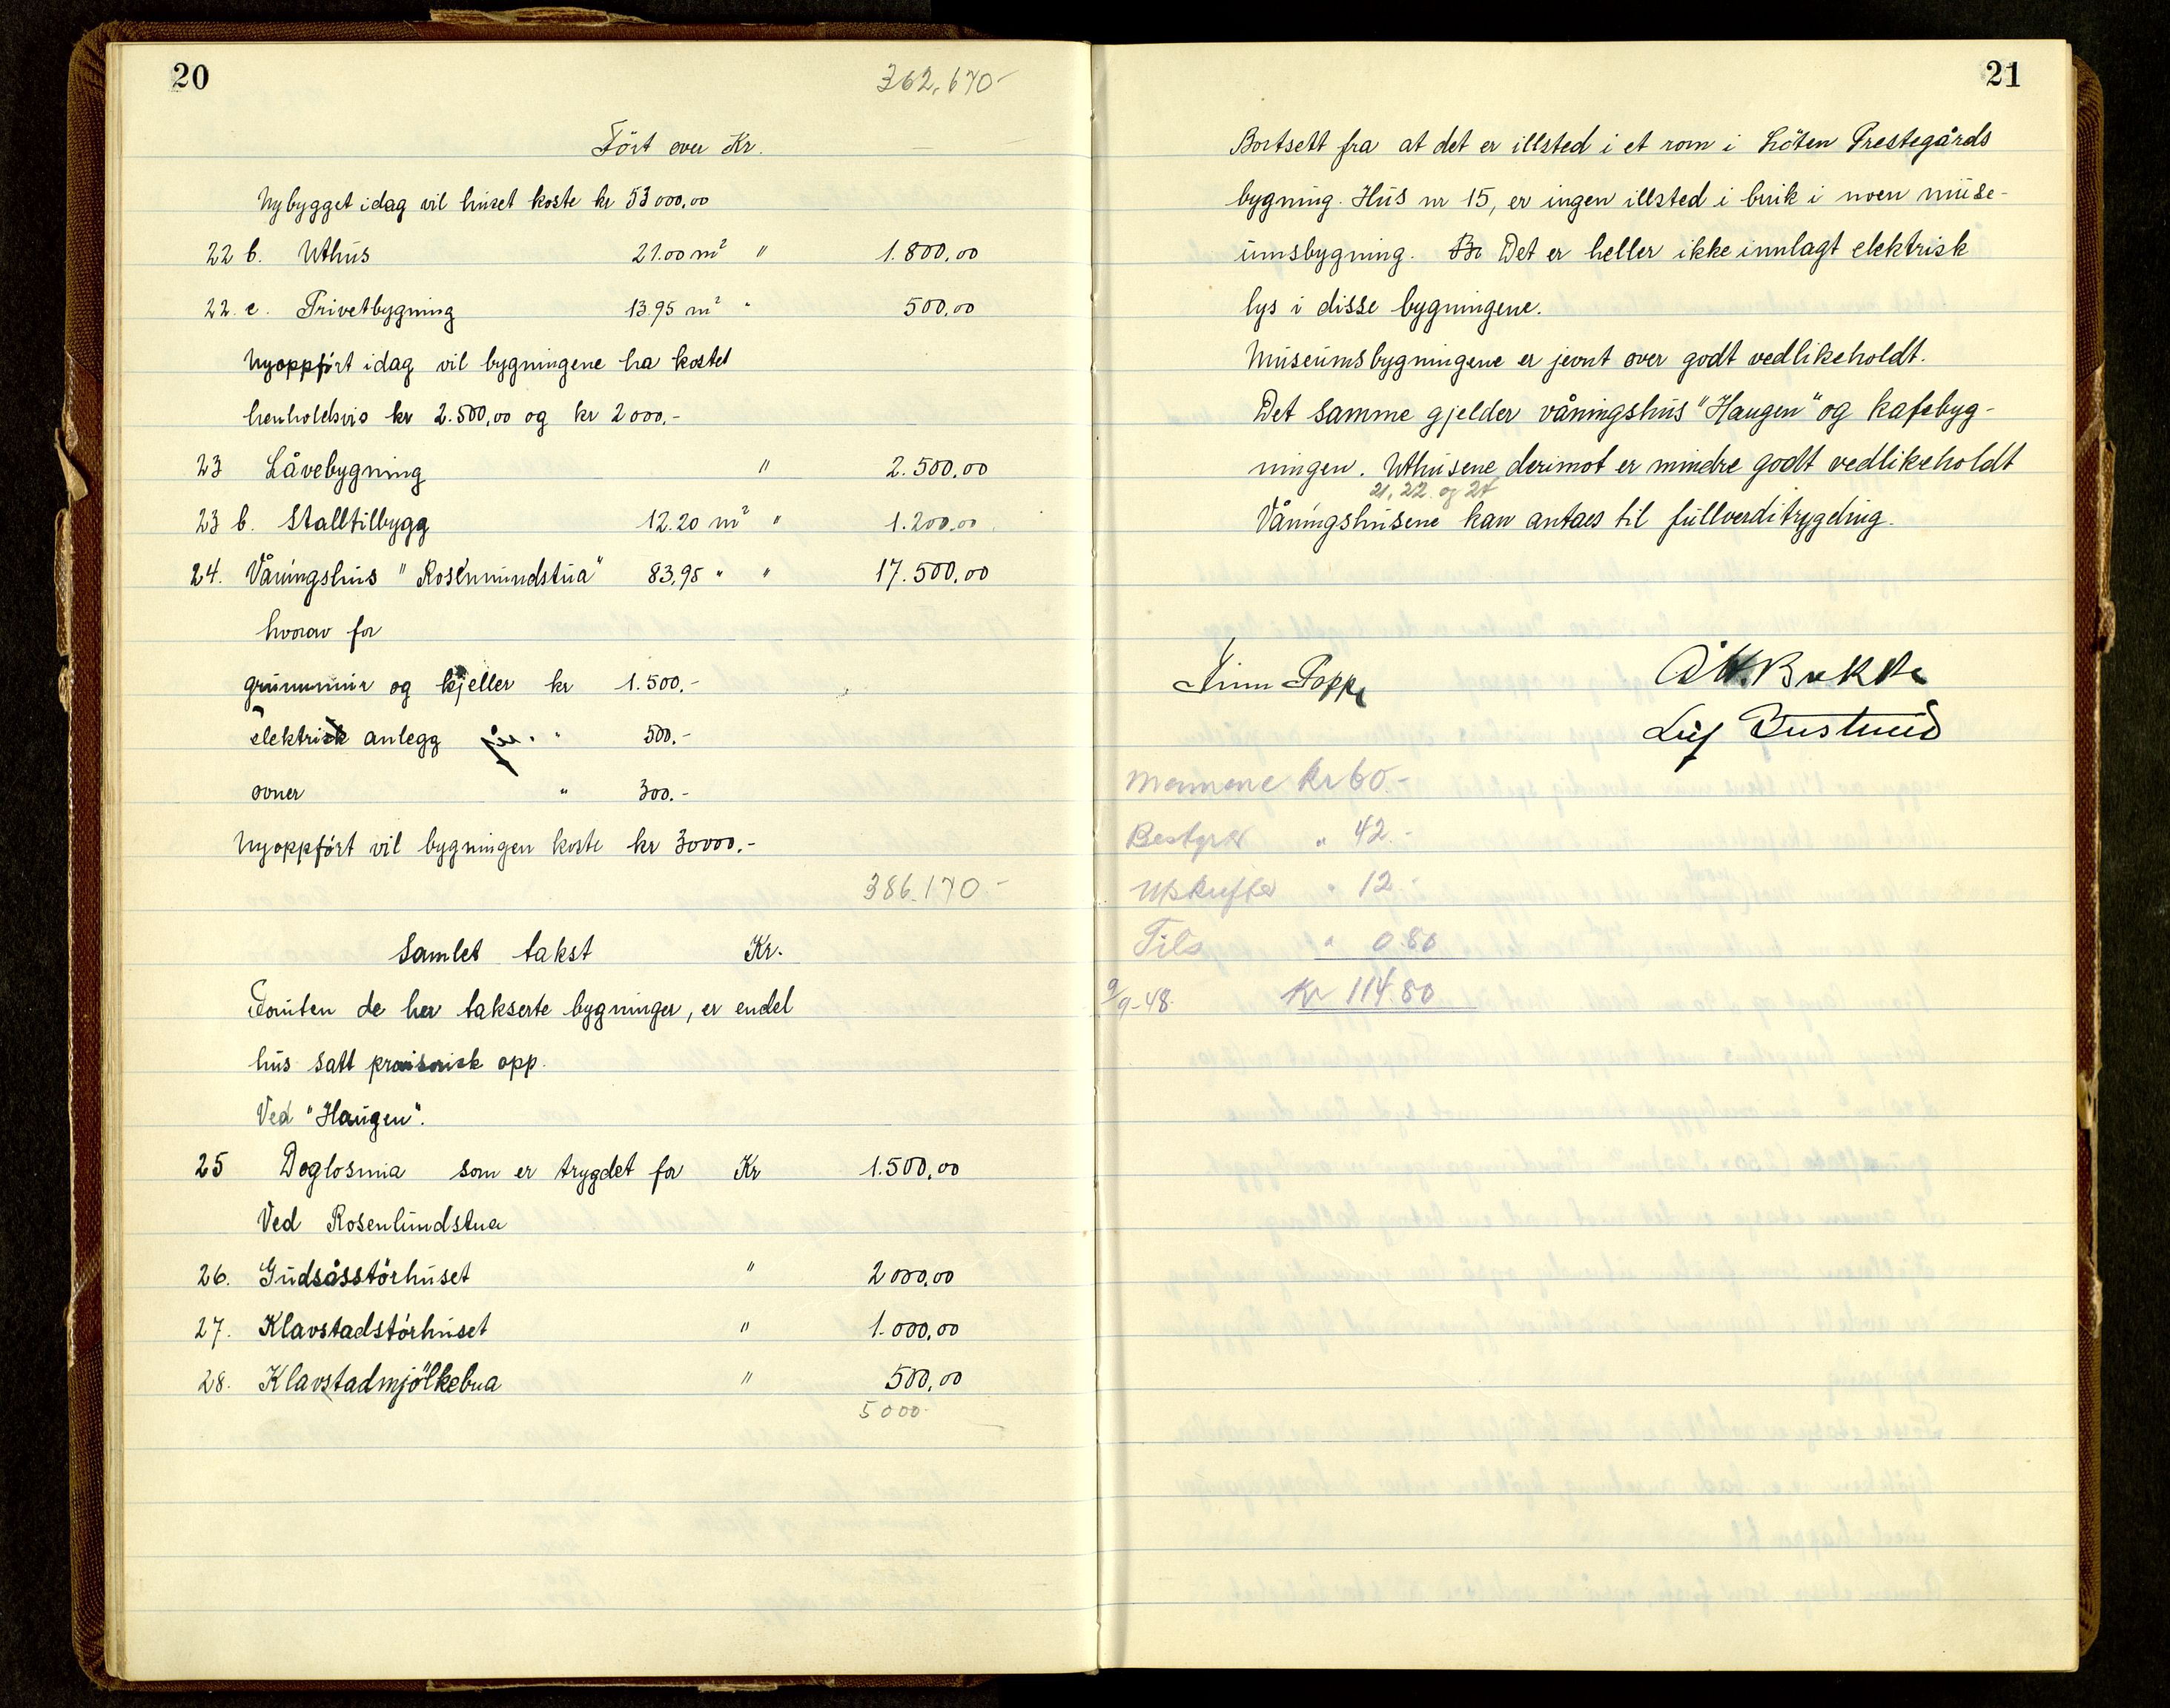 20
362.670-
Fört over Kr.
Nybygget idag vil huset koste kr 53000,00
22 b. Uthus 21.00 m² " 1.800,00
22. c. Privetbygning 13.95 m² " 500,00
Nyoppfört idag vil bygningene ha kostet
henholdsvis kr 2.500,00 og kr 2000,-
23 Låvebygning " 2.500,00
23 b. Stalltilbygg 12.20 m² " 1.200,00
24. Våningshus "Rosenlundstua" 83,95 " " 17.500,00
hvorav for
grunnmur og kjeller kr 1.500.-
elektrisk anlegg " 500.-
ovner " 300.-
Nyoppfört vil bygningen koste kr 30000.-
386.170-
Samlet takst Kr.
Foruten de her takserte bygninger, er endel
hus satt provisorisk opp.
Ved "Haugen".
25 Doglosmia som er trygdet for Kr 1.500,00
Ved Rosenlundstua
26. Gudsåsstörhuset " 2000,00
27. Klavstadstörhuset " 1.000,00
28. Klavstadmjölkebua " 500,00
5000-
21
Bortsett fra at det er illsted i et rom i Löten Prestegårds
bygning. Hus nr 15, er ingen illsted i bruk i noen muse-
umsbygning. Det er heller ikke innlagt elektrisk
lys i disse bygningene.
Museumsbygningene er jevnt over godt vedlikeholdt.
Det samme gjelder våningshus "Haugen" og kafebyg-
ningen. Uthusene derimot er mindre godt vedlikeholdt
21, 22 og 24
Våningshusene kan antaes til fullverditrygding.
Finn Poppe
O.W. Bakke
Leif
Mennene kr 60.-
Bestyrer " 42.-
Utskrifter " 12.-
Tils " 0.80
9/9-48. Kr 114.80